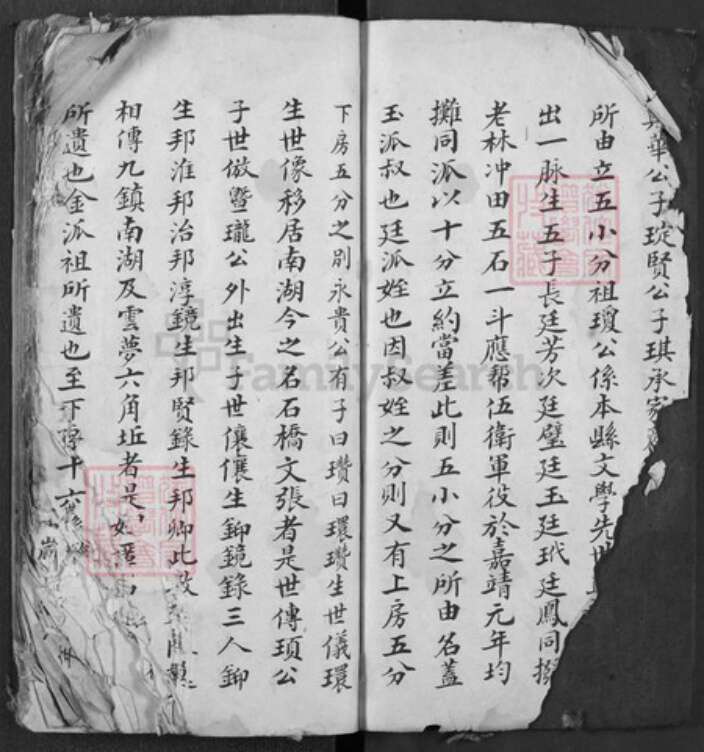 華公子琔賢公子琪承家
所由立五小分祖瓊公係本縣文學先世
出一脉生五子長廷芳次廷璧廷玉廷玳廷鳳同
老林冲田五石一斗應帮伍衛軍役於嘉靖元年均
攤同派以十分立約當差此則五小分之所由名蓋
玉派叔也廷派姪也因叔姪之分則又有上房五分
下房五分之别永貴公有子曰瓚曰環瓚生世儀環
生世像移居南湖今之名石橋文張者是世傳頊公
子世倣暨瓏公外出生子世儴儴生鉚鏡錄三人鉚
生邦淮邦治邦淳鏡生邦賢錄生邦卿此
相傳九鎮南湖及雲夢六角坵者是
所遺也金派祖所遺也至下傳十六
FamilySearch